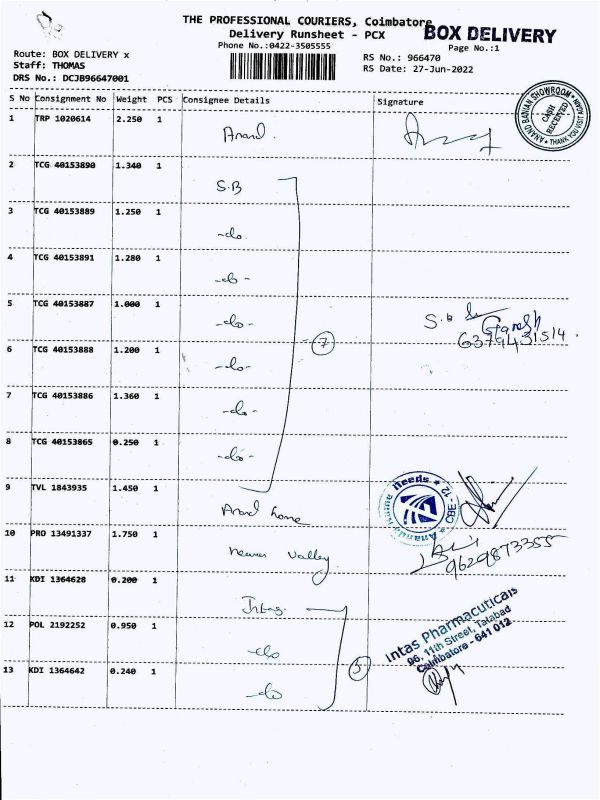 THE PROFESSIONAL COURIERS, Coimbatore
Delivery Runsheet - PCX
BOX DELIVERY
Phone No.:0422-3505555
Page No.:1
Route: BOX DELIVERY x
Staff: THOMAS
DRS No.: DCJB96647001
RS No.: 966470
RS Date: 27-Jun-2022
ANAND BANIAN SHOWROOM
CASH RECEIVED
THANK YOU VISIT AGAIN
S No Consignment No Weight PCS Consignee Details Signature
1 TRP 1020614 2.250 1 Anand.
2 TCG 40153890 1.340 1 S.B
3 TCG 40153889 1.250 1 -do.
4 TCG 40153891 1.280 1 -do-
5 TCG 40153887 1.000 1 -do- S.B Ganesh
7 6379431514.
6 TCG 40153888 1.200 1 -do-
7 TCG 40153886 1.360 1 -do-
8 TCG 40153865 0.250 1 -do-
9 TVL 1843935 1.450 1 Anand home
needs * CBE - 12 *
10 PRO 13491337 1.750 1 Valley
9629873355
11 KDI 1364628 0.200 1 Intas
12 POL 2192252 0.950 1 do
3
Intas Pharmaceuticals
96, 11th Street, Tatabad
Coimbatore - 641 012
13 KDI 1364642 0.240 1 -do